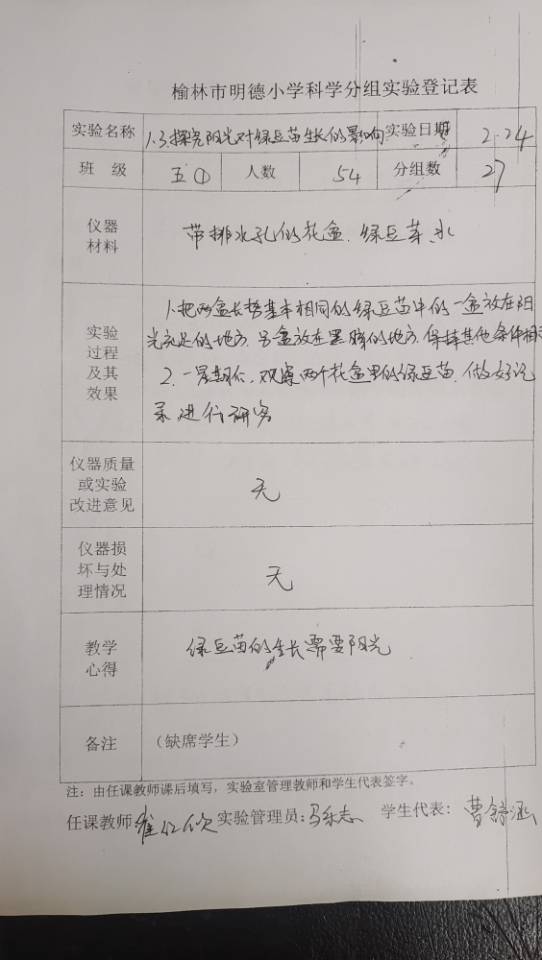 榆林市明德小学科学分组实验登记表
实验名称 1.3探究阳光对绿豆苗生长的影响 实验日期 2.24
班 级 五① 人数 54 分组数 27
仪器
材料
带排水孔的花盆.绿豆芽.水
实验
过程
及其
效果
1.把两盆长势基本相同的绿豆苗中的一盆放在阳
光充足的地方.另盆放在黑暗的地方.保持其他条件相
2.一星期后.观察两个花盆里的绿豆苗.做好记
录进行研究
仪器质量
或实验
改进意见
无
仪器损
坏与处
理情况
无
教学
心得
绿豆苗的生长需要阳光
备注
(缺席学生)
注:由任课教师课后填写,实验室管理教师和学生代表签字。
任课教师 实验管理员: 学生代表: